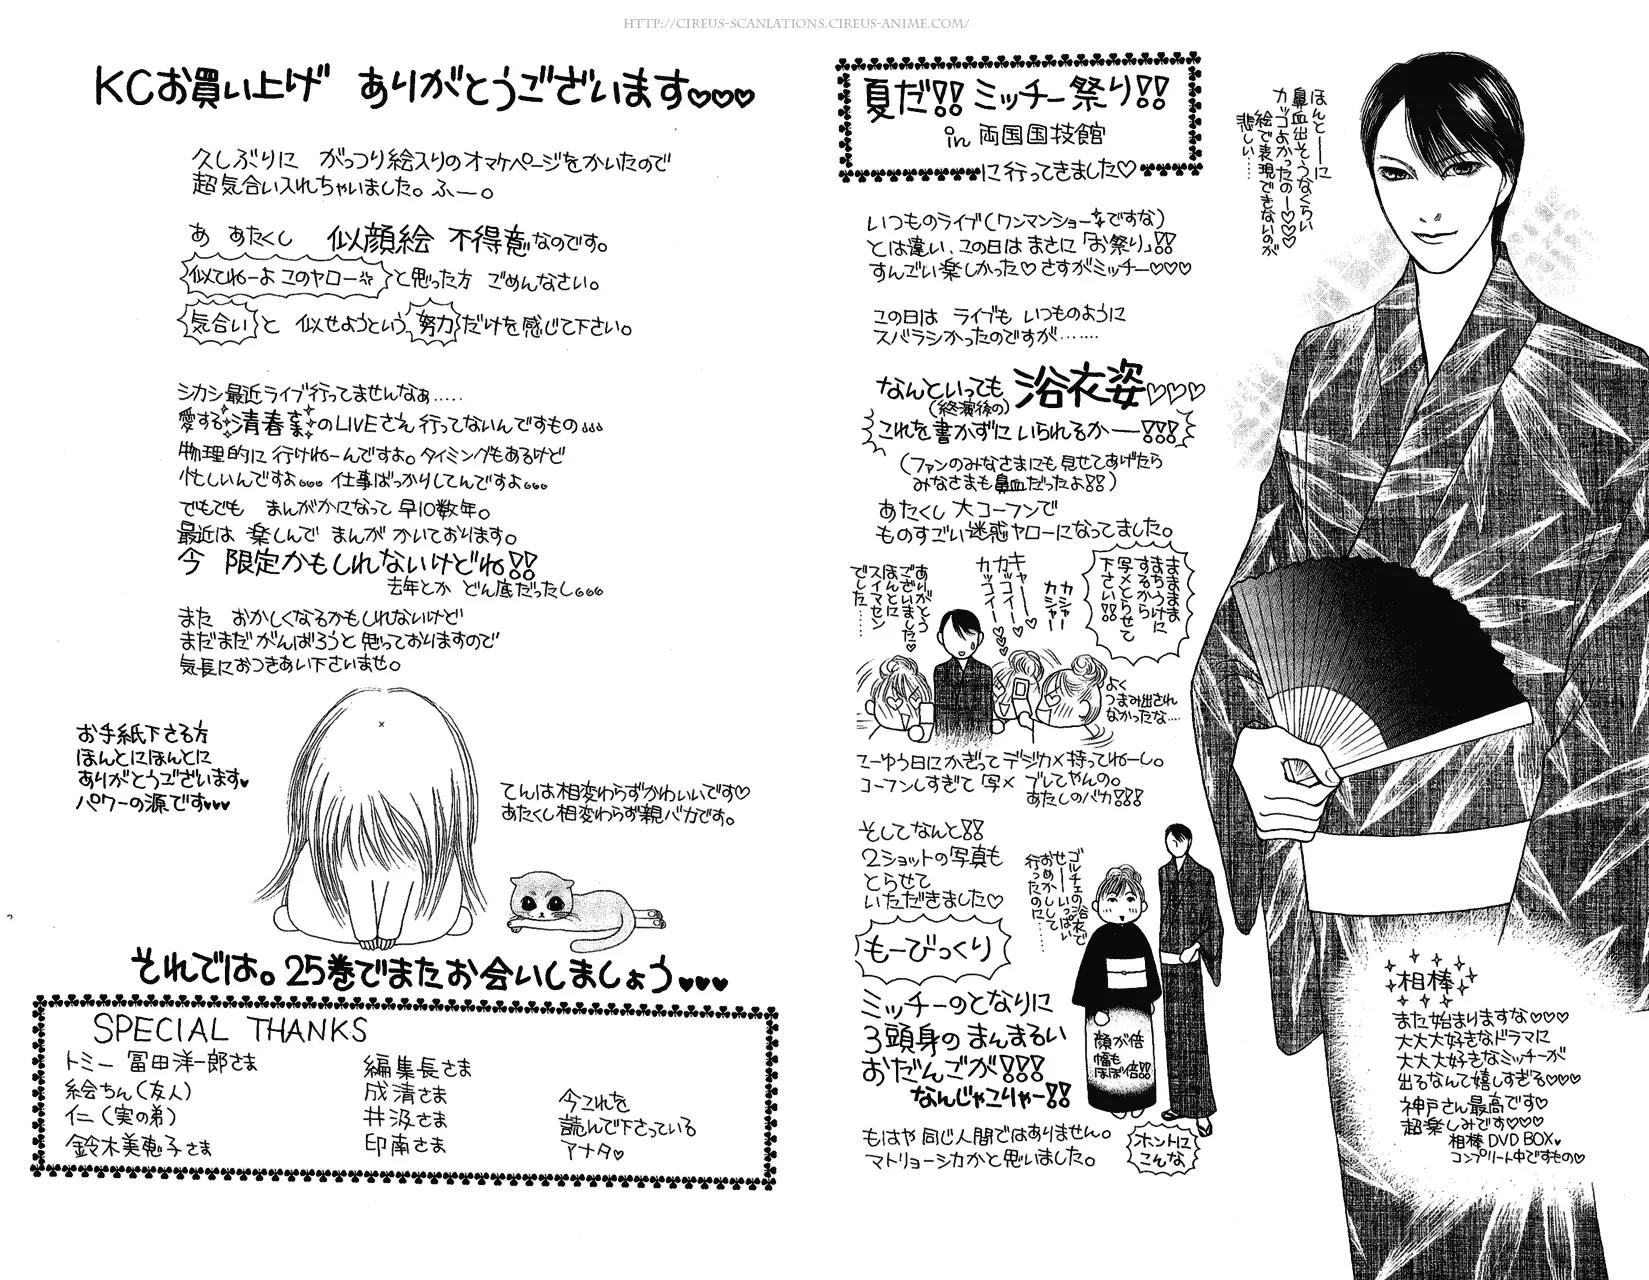 HTTP://CIREUS-SCANLATIONS.CIREUS-ANIME.COM/
夏だ!! ミッチー祭り!!
in 両国国技館
に行ってきました♡
ほんとーーに
鼻血出そうなくらい
カッコよかったのー♡♡♡
絵で表現できないのが
悲しい……
いつものライブ(ワンマンショーですな)
とは違い、この日は まさに「お祭り」!!
すんごい楽しかった♡ さすがミッチー♡♡♡
この日は ライブも いつものように
スバラシかったのですが……
なんといっても 浴衣姿♡♡♡
(終演後の)
これを書かずに いられるかー!!!
(ファンのみなさまにも 見せてあげたら
みなさまも 鼻血だったよ!!)
あたくし 大コーフンで
ものすごい迷惑ヤローになってました。
まままま
まちうけに
するから
写メとらせて
下さい!!
カシャー
カシャー
キャーー
カッコイー♥
カッコイー♥♥♥
ありがとう
ございました♥
ほんとに
スイマセン
でした……
よく
つまみ出され
なかったな…
てーゆう日にかぎって デジカメ持ってねーし。
コーフンしすぎて 写メ ブレてやんの。
あたしのバカ!!!
そしてなんと!!
2ショットの写真も
とらせて
いただきました♡
ゴルチェの浴衣で
せーいっぱい
おめかしして
行ったのに……
もーびっくり
ミッチーのとなりに
3頭身のまんまるい
おだんごが!!!
なんじゃこりゃー!!
顔が倍
幅も
ほぼ倍!!
もはや 同じ人間ではありません。
マトリョーシカかと思いました。
ホントに
こんな
相棒
また始まりますな♡♡♡
大大大好きなドラマに
大大大好きなミッチーが
出るなんて嬉しすぎる♡♡♡
神戸さん最高です♡
超楽しみです♡♡♡
相棒 DVD BOX♥
コンプリート中ですもの♡
KCお買い上げ ありがとうございます♡♡♡
久しぶりに がっつり絵入りのオマケページをかいたので
超気合い入れちゃいました。ふー。
あ あたくし 似顔絵 不得意なのです。
似てねーよ このヤローと思った方 ごめんなさい。
気合いと 似せようという 努力だけを感じて下さい。
シカシ最近ライブ行ってませんなぁ……
愛する 清春さまのLIVEさえ 行ってないんですもの。。。
物理的に 行けねーんですよ。タイミングもあるけど
忙しいんですよ。。。仕事ばっかりしてんですよ。。。
でもでも まんがかになって 早10数年。
最近は 楽しんで まんが かいております。
今 限定かもしれないけどね!!
去年とか どん底だったし。。。
また おかしくなるかもしれないけど
まだまだ がんばろうと 思っておりますので
気長におつきあい下さいませ。
お手紙下さる方
ほんとにほんとに
ありがとうございます♥
パワーの源です♥♥♥
てんは相変わらずかわいいです♡
あたくし相変わらず親バカです。
それでは。25巻でまたお会いしましょう♥♥♥
SPECIAL THANKS
トミー 冨田洋一郎さま
絵ちん(友人)
仁(実の弟)
鈴木美恵子さま
編集長さま
成清さま
井汲さま
印南さま
今これを
読んで下さっている
アナタ♥